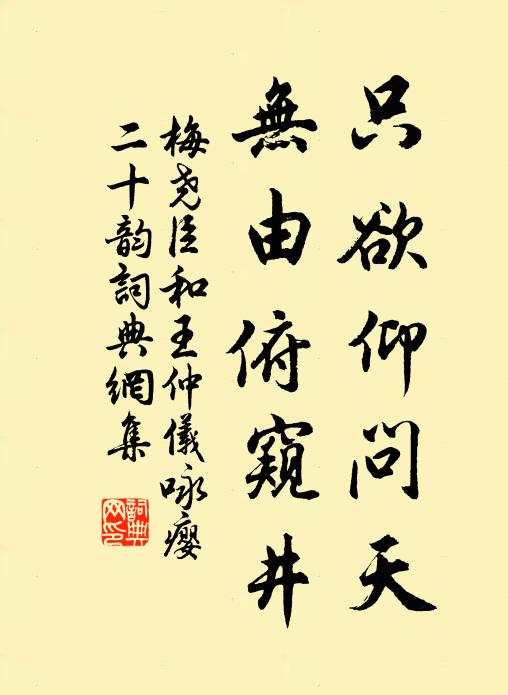 只欲仰问天
無由俯窺井
梅尧臣和王仲儀咏癭
二十韵詞典網集
詞典网印